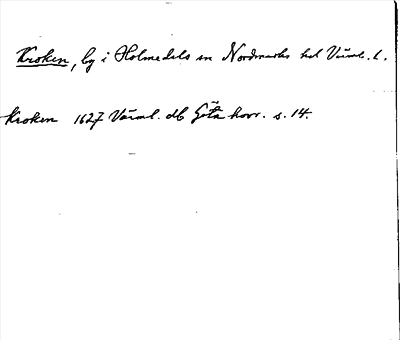 Kroken, by i Holmedals sn Nordmarks hd Värml. l.
Kroken 1627 Värml. db Göta hovr. s. 14.